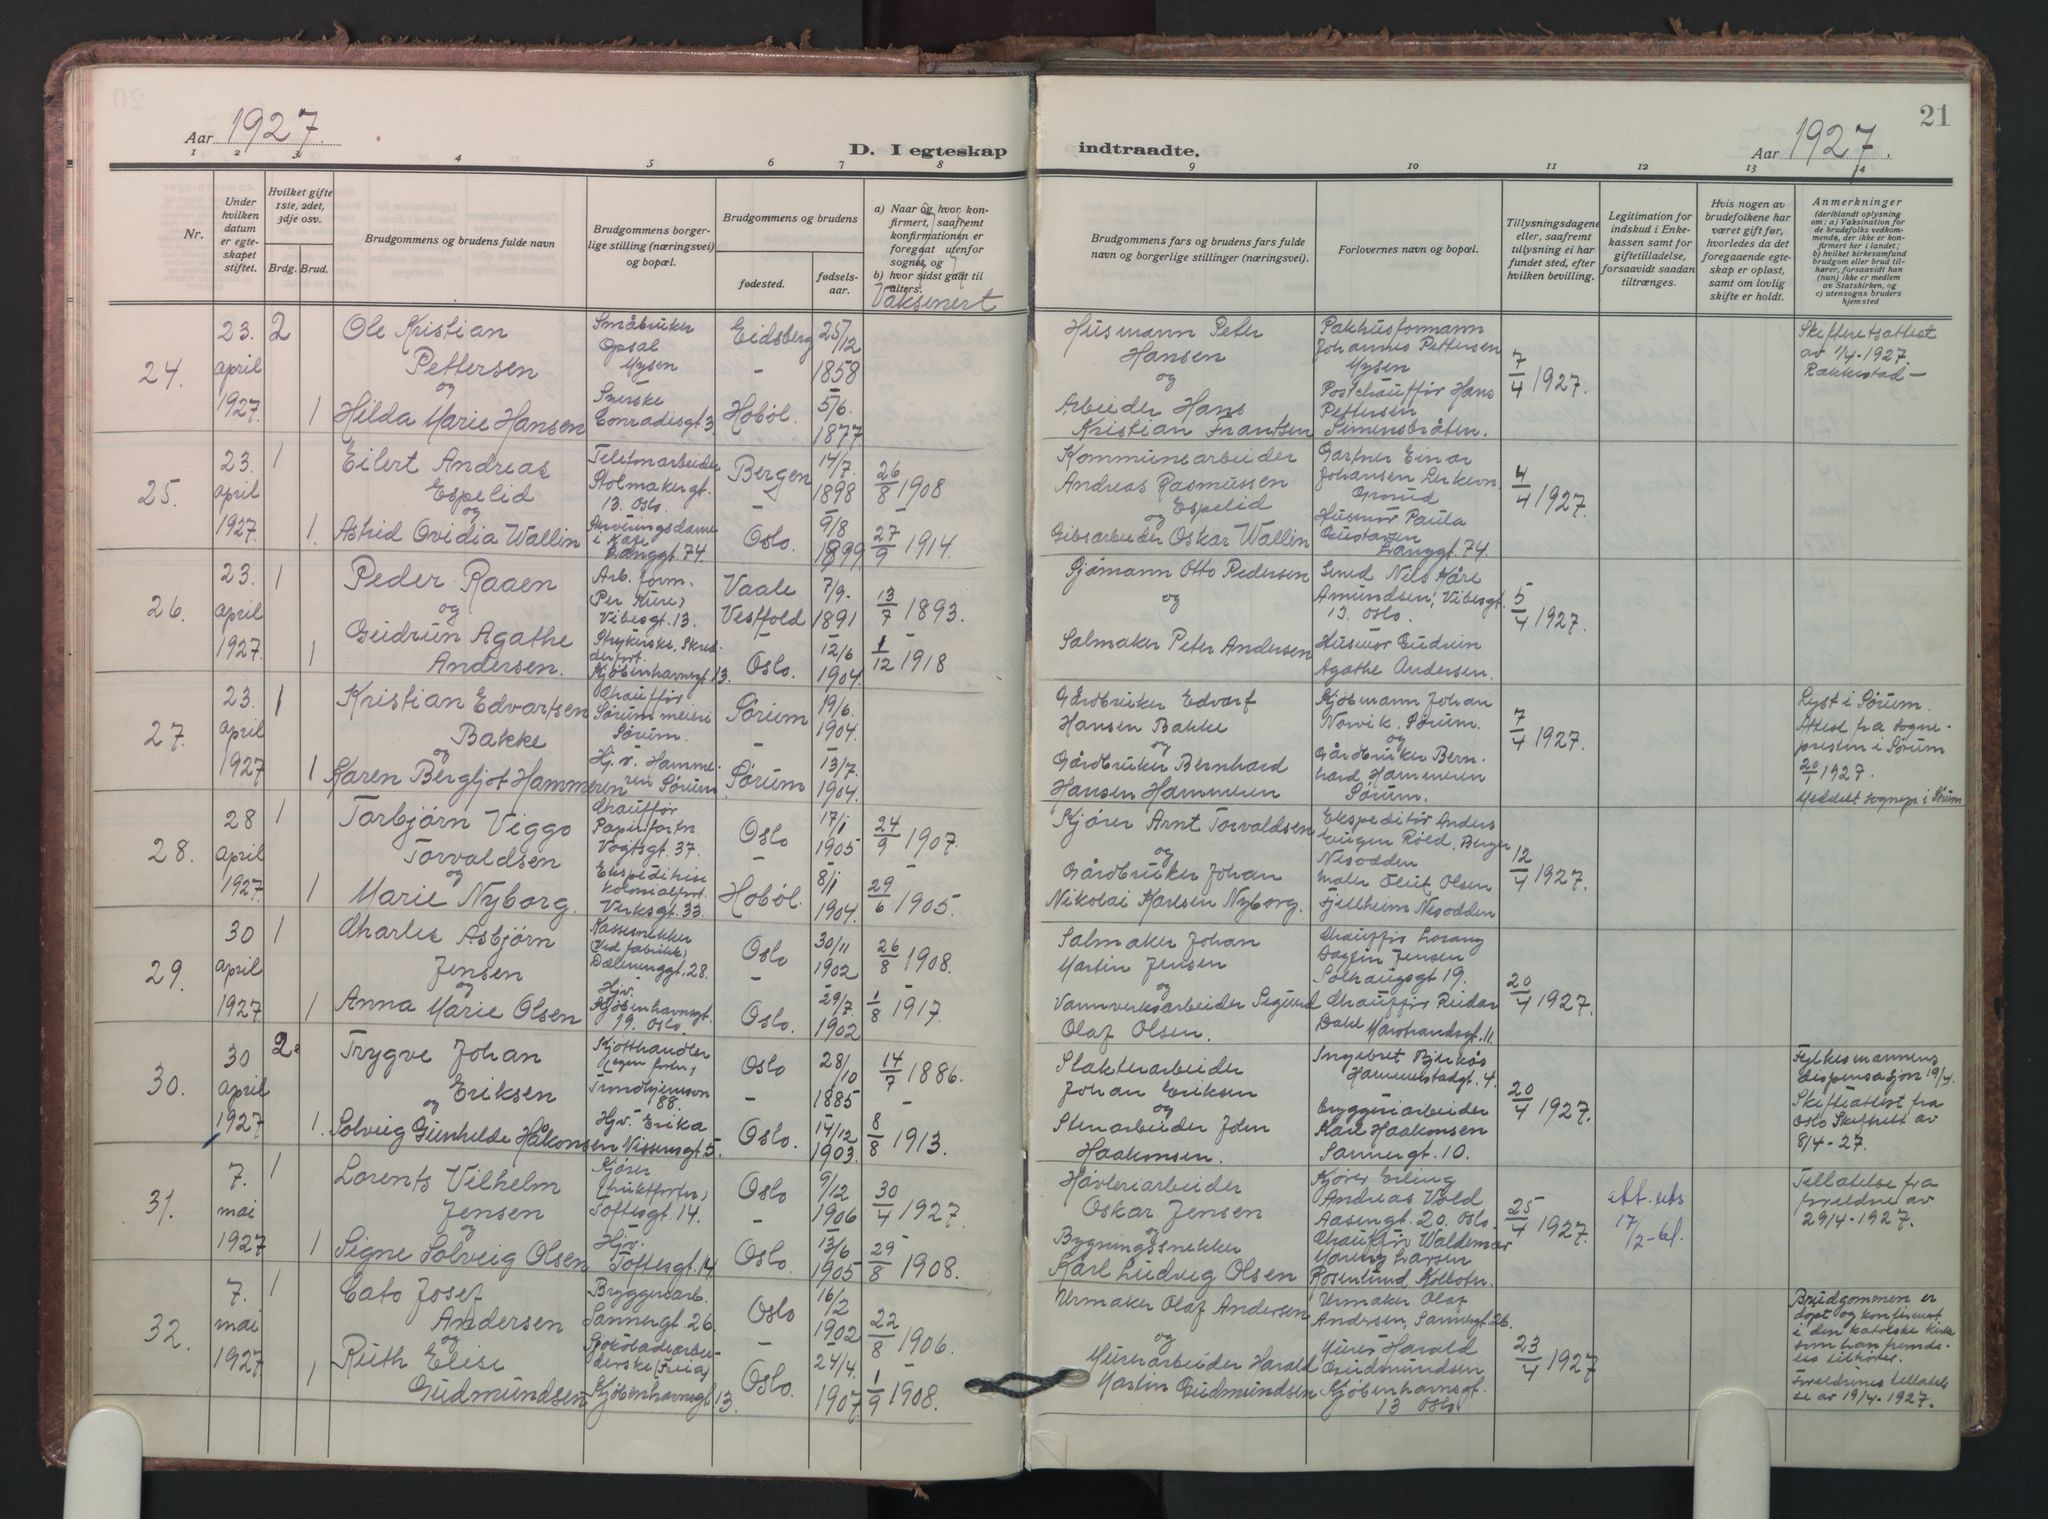 Aar 1927.
D. I egteskap
1 2 3 4 5 6 7 8
Nr.
Under hvilken datum er egteskapet stiftet.
Hvilket gifte 1ste, 2det, 3dje osv.
Brdg. Brud.
Brudgommens og brudens fulde navn
Brudgommens borgerlige stilling (næringsvei) og bopæl.
Brudgommens og brudens
fødested.
fødselsaar.
a) Naar og hvor konfirmert, saafremt konfirmationen er foregaat utenfor sognet, og
b) hvor sidst gaat til alters.
Vaksinert
24.
23. april 1927.
2
Ole Kristian
Pettersen
og
1 Hilda Marie Hansen
Småbruker
Opsal
Mysen
Conradisgt. 3
Eidsberg
-
Hobøl.
25/12
1858
5/6.
1877
25.
23. april 1927.
1
Eilert Andreas
Espelid
og
1. Astrid Ovidia Wallin
Stolmakergt.
13. Oslo.
Langgt. 74.
Bergen
-
Oslo.
14/7.
1898
9/8
1899
26/8 1908
-
27/9 1914.
26.
23. april 1927.
1
Peder Raaen
og
1 Gudrun Agathe
Andersen.
Arb. form.
Per Kure,
Vibesgt. 13.
Strykerske, Skred-
Kjøbenhavnsgt. 13.
Vaale
Vestfold
-
Oslo.
7/9.
1891
12/6
1904.
13/7 1893.
-
1/12 1918
27.
23. april 1927
1
Kristian Edvartsen
Bakke
og
1 Karen Bergljot Hammeren
Chauffør
Sørum meieri
Sørum.
Hj. v. Hamme-
ren Sørum.
Sørum
-
Sørum
19/6.
1904.
13/7.
1904.
28.
28 april 1927
1
Torbjørn Viggo
Torvaldsen
og
1 Marie Nyborg.
Chauffør
Papirfortn
Vogtsgt. 37.
Ekspeditrise
kolonialfort.
Verksgt. 33
Oslo
-
Hobøl.
17/1
1905
8/1
1904.
24/9 1907.
-
29/6 1905.
29.
30 april 1927.
1
Charles Asbjørn
Jensen
og
1 Anna Marie Olsen
Kassesnekker
ved fabrikk,
Dælenenggt. 28.
Hjv.
Kjøbenhavnsgt.
19. Oslo.
Oslo
-
Oslo.
30/11
1902
29/7.
1902
26/8 1908.
-
1/8 1917.
30.
30 april 1927
2.
Trygve Johan
Eriksen
og
1. Solveig Gunhilde Håkonsen
Kjøtthandler
(egen forr.,
Trondhjemsvn
88.
Hjv. Erika
Nissensgt. 5.
Oslo
-
Oslo.
28/10
1885
14/12
1903.
14/7 1886.
-
8/8 1913.
31.
7. mai 1927
1
Lorents Vilhelm
Jensen
og
1 Signe Solveig Olsen
Kjører
(fruktforr.,
Toftesgt. 14.
Hjv.
Toftesgt. 14
Oslo
-
Oslo.
9/12
1906
13/6
1905
30/4 1927.
29/8 1908.
32.
7. mai 1927
1
Cato Josef
Andersen
og
1 Ruth Elise
Gudmundsen
Bryggeriarb.
Sannergt. 26.
Sjokoladearbei-
derske (Freia)
Kjøbenhavnsgt 13.
Oslo
-
Oslo.
16/2
1902
24/4.
1907.
22/8 1906.
-
1/9 1908.
21
indtraadte.
Aar 1927.
9 10 11 12 13 14
Brudgommens fars og brudens fars fulde navn og borgerlige stillinger (næringsvei).
Forlovernes navn og bopæl.
Tillysningsdagene eller, saafremt tillysning ei har fundet sted, efter hvilken bevilling.
Legitimation for indskud i Enkekassen samt for giftetilladelse, forsaavidt saadan tiltrænges.
Hvis nogen av brudefolkene har været gift før, hvorledes da det foregaaende egteskap er opløst, samt om lovlig skifte er holdt.
Anmerkninger
(deriblandt oplysning om: a) Vaksination for de brudefolks vedkommende, der ikke er konfirmert her i landet; b) hvilket kirkesamfund brudgom eller brud tilhører, forsaavidt han (hun) ikke er medlem av Statskirken, og c) utensogns bruders hjemsted
Husmann Peter
Hansen
og
Arbeider Hans
Kristian Frantsen
Pakhusformann
Johannes Pettersen
Mysen
Postchauffør Hans
Pettersen
Simensbråten.
7/4 1927.
Skifteretsattest
av 1/4-1927.
Rakkestad-
Kommunearbeider
Andreas Rasmussen
Espelid
og
Gibsarbeider Oskar Wallin
Gartner Einar
Johansen Lerkevn.
Grorud
Husmor Paula
Gustavsen
Langgt. 74.
4/4 1927.
Sjømann Otto Pedersen
og
Salmaker Peter Andersen
Smed Nils Kåre
Amundsen, Vibesgt.
13. Oslo.
Husmor Gudrun
Agathe Andersen.
5/4 1927.
Gårdbruker Edvart
Hansen Bakke
og
Gårdbruker Bernhard
Hansen Hammeren
Kjøbmann Johan
Norvik. Sørum.
og
Gårdbruker Bern-
hard Hammeren
Sørum.
7/4 1927.
Lyst i Sørum.
Attest fra sogne-
presten i Sørum
1927.
Meddelt sognepr. i Sørum
Kjører Arnt Torvaldsen
og
Gårdbruker Johan
Nikolai Karlsen Nyborg.
Ekspeditør Anders
Eugen Røed, Berger
Nesodden
Maler Oluf Olsen
Fjellheim Nesodden
12/4 1927.
Salmaker Johan
Martin Jensen
og
Vannverksarbeider Sigurd
Olaf Olsen.
Chauffør Lorang
Dagfin Jensen
Solhaugsgt 19.
Chauffør Reidar
Dahl Marstrandsgt. 11.
20/4 1927.
Slakteriarbeider
Johan Eriksen
og
Stenarbeider John
Haakonsen.
Ingebret Bjerkås
Hammerstadgt. 4.
Bryggeriarbeider
Karl Haakonsen
Sannergt. 10.
20/4 1927.
Fylkesmannens
dispensasjon 19/4.
Skifteattest fra
Oslo Skifteret av
8/4-27.
Høvleriarbeider
Oskar Jensen
og
Bygningssnekker
Karl Ludvig Olsen
Kjører Erling
Andreas Vold
Aasengt. 20. Oslo.
Chauffør Waldemar
Mareng Larsen
Rosenlund Kolbotn.
25/4 1927.
att. uts
17/2-61.
Tillatelse fra
foreldre av
29/4-1927.
Urmaker Olaf Andersen
og
Murerarbeider Harald
Martin Gudmundsen
Urmaker Olaf
Andersen, Sannergt 26.
Murer Harald
Gudmundsen
Kjøbenhavnsgt.
13 Oslo
23/4 1927
Brudgommen er
døpt og konfirmert
i den katolske kirke
som han fremde-
les tilhører.
Foreldrenes tillatel-
se av 19/4-1927.